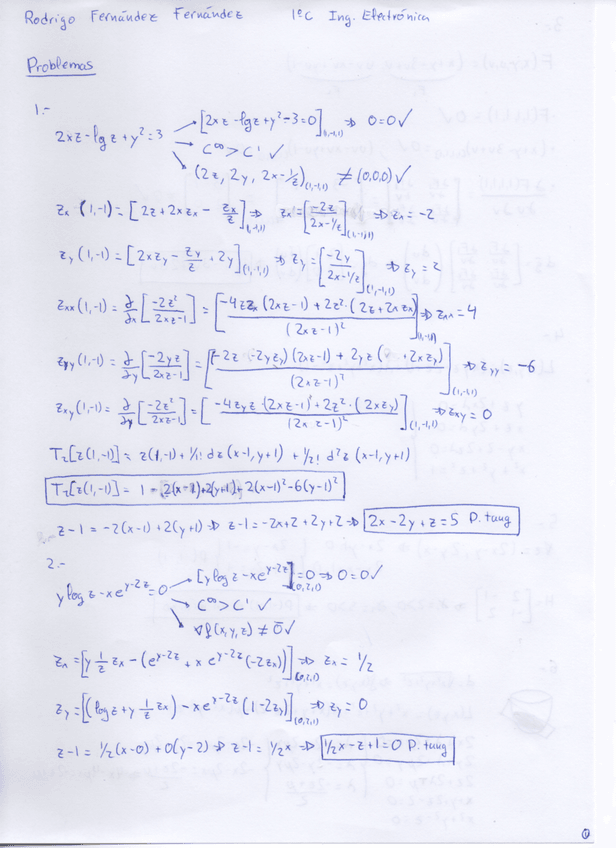 Rodrigo Fernández Fernández 1ºC Ing. Electrónica
Problemas
1.-
2xz - lg z + y² = 3
[2xz - lg z + y² - 3 = 0](1,-1,1) ⇒ 0 = 0 ✓
C^∞ > C¹ ✓
(2z, 2y, 2x - 1/z)(1,-1,1) ≠ (0,0,0) ✓
zx (1,-1) = [2z + 2xzx - zx/z](1,-1,1) ⇒ zx = [-2z/(2x-1/z)](1,-1,1) ⇒ zx = -2
zy (1,-1) = [2xzy - zy/z + 2y](1,-1,1) ⇒ zy = [-2y/(2x-1/z)](1,-1,1) ⇒ zy = 2
zxx (1,-1) = ∂/∂x [-2z²/(2xz-1)] = [(-4zzx (2xz-1) + 2z² · (2z + 2xzx))/(2xz-1)²](1,-1,1) ⇒ zxx = 4
zyy (1,-1) = ∂/∂y [-2yz/(2xz-1)] = [((-2z - 2yzy)(2xz-1) + 2yz( + 2xzy))/(2xz-1)²](1,-1,1) ⇒ zyy = -6
zxy (1,-1) = ∂/∂y [-2z²/(2xz-1)] = [(-4zyz · (2xz-1) + 2z² · (2xzy))/(2xz-1)²](1,-1,1) ⇒ zxy = 0
T₂[z(1,-1)] = z(1,-1) + 1/1! dz (x-1, y+1) + 1/2! d²z (x-1, y+1)
T₂[z(1,-1)] = 1 - 2(x-1)+2(y+1)+ 2(x-1)² - 6(y-1)²
z-1 = -2(x-1) + 2(y+1) ⇒ z-1 = -2x+2+2y+2 ⇒ 2x-2y+z=5 P. tang
2.-
y log z - x e^(y-2z) = 0
[y log z - x e^(y-2z)] = 0 (0,2,1) ⇒ 0 = 0 ✓
C^∞ > C¹ ✓
∇f(x,y,z) ≠ 0̄ ✓
zx = [y 1/z zx - (e^(y-2z) + x e^(y-2z) (-2zx))](0,2,1) ⇒ zx = 1/2
zy = [(log z + y 1/z zx) - x e^(y-2z) (1-2zy)](0,2,1) ⇒ zy = 0
z-1 = 1/2 (x-0) + 0(y-2) ⇒ z-1 = 1/2 x ⇒ 1/2x - z+1=0 P. tang